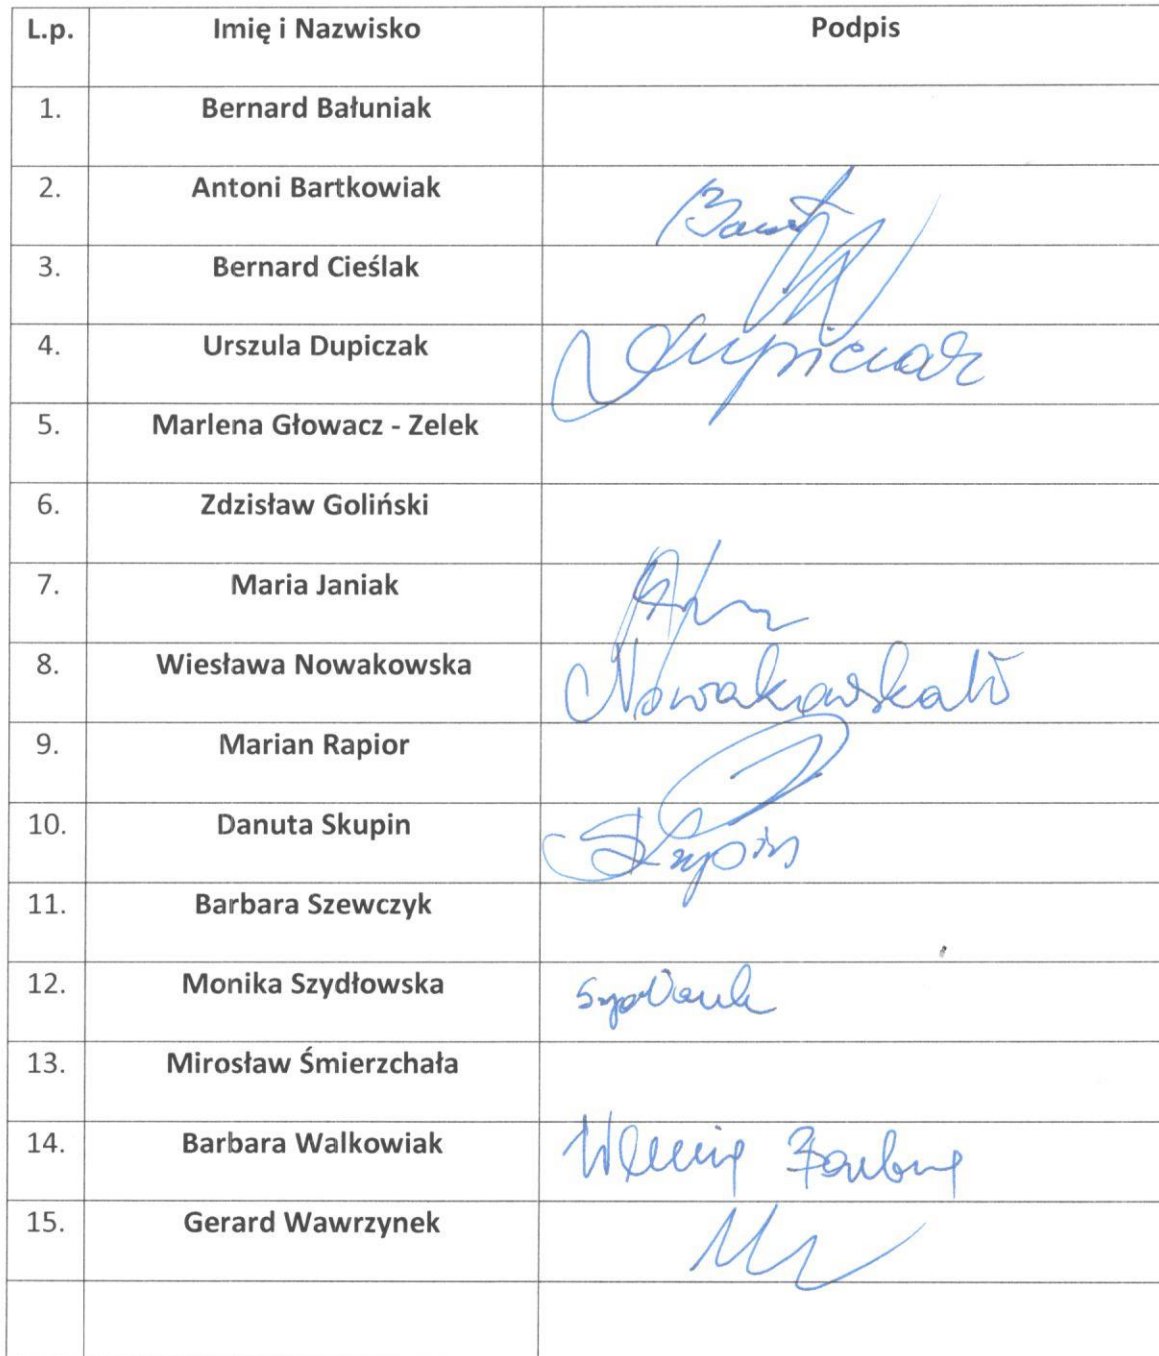 L.p. Imię i Nazwisko Podpis
1. Bernard Bałuniak
2. Antoni Bartkowiak
3. Bernard Cieślak
4. Urszula Dupiczak Dupiczak
5. Marlena Głowacz - Zelek
6. Zdzisław Goliński
7. Maria Janiak
8. Wiesława Nowakowska Nowakowska W
9. Marian Rapior
10. Danuta Skupin Skupin
11. Barbara Szewczyk
12. Monika Szydłowska
13. Mirosław Śmierzchała
14. Barbara Walkowiak
15. Gerard Wawrzynek